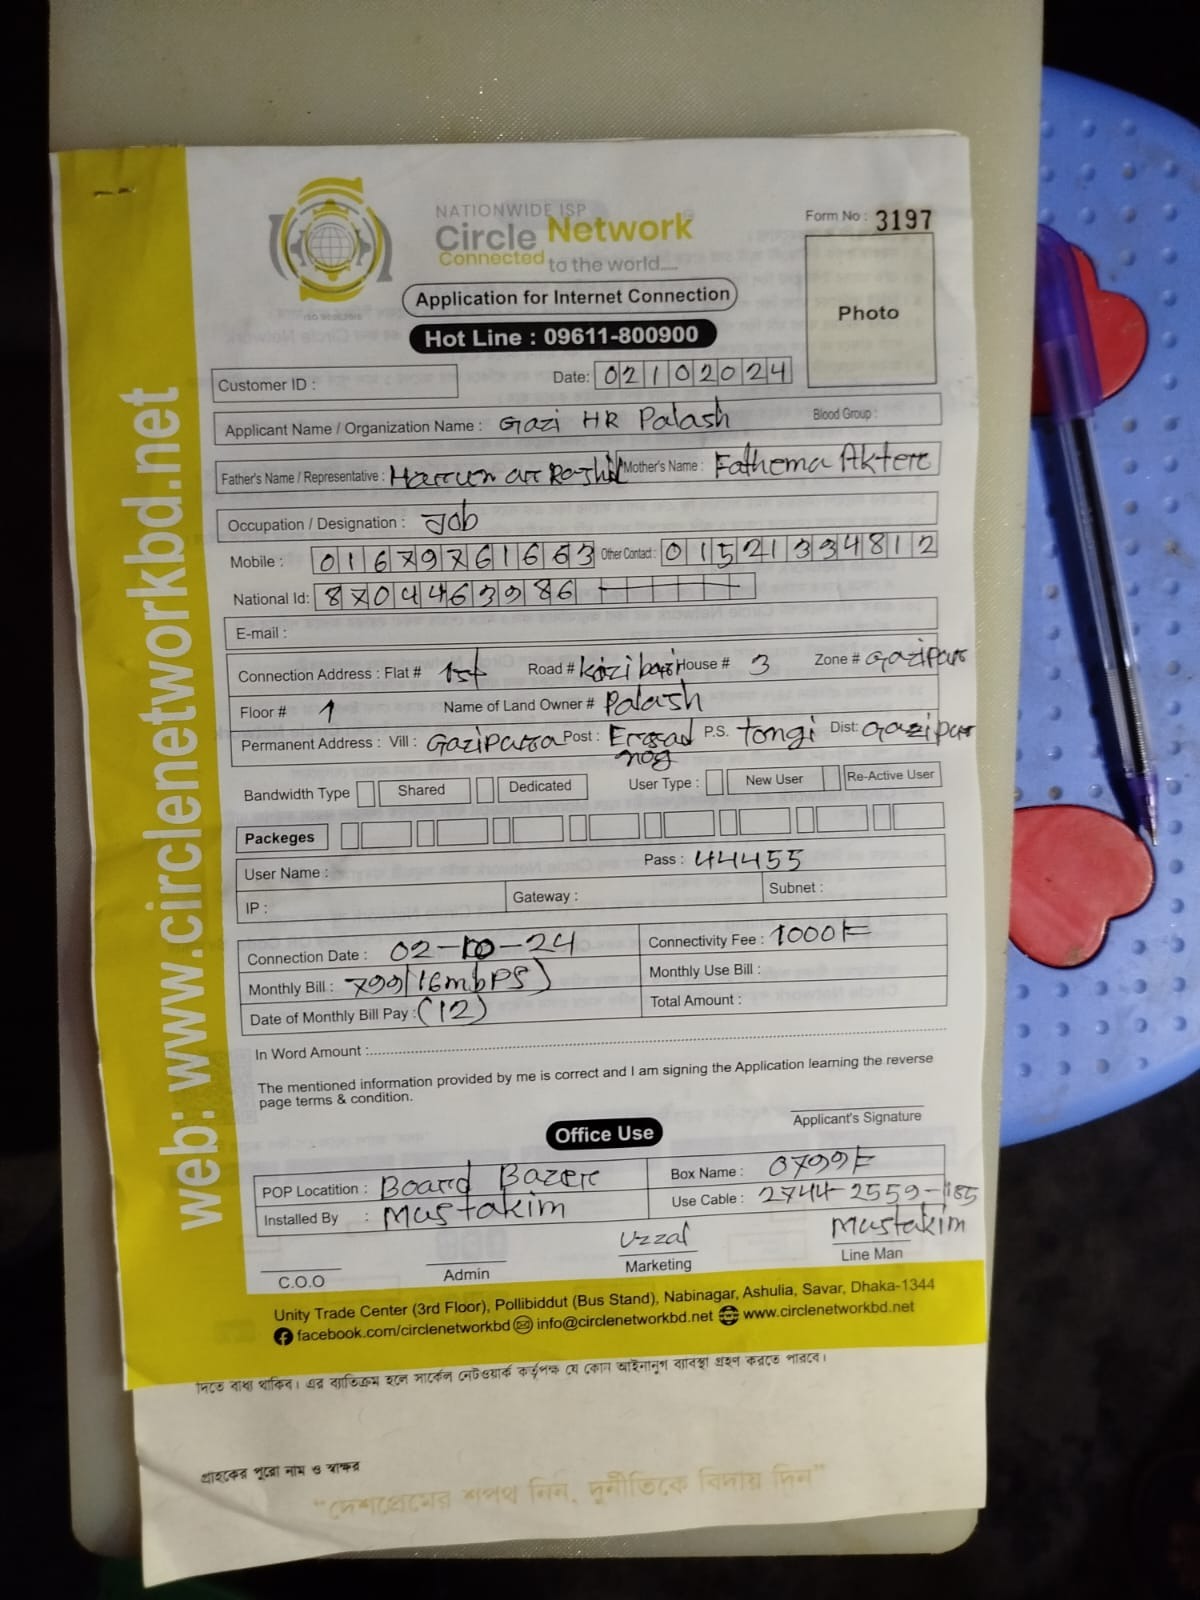 NATIONWIDE ISP
Circle Network
Connected to the world.....
Form No : 3197
Application for Internet Connection
Hot Line : 09611-800900
Photo
Customer ID :
Date: 02102024
Applicant Name / Organization Name : Gazi HR Palash Blood Group :
Father's Name / Representative : Mother's Name : Fathema Aktere
Occupation / Designation : Job
Mobile : 01679761663 Other Contact : 01521334812
National Id: 8704463986
E-mail :
Connection Address : Flat # 1st Road # House # 3 Zone # Gazipur
Floor # 1 Name of Land Owner # Palash
Permanent Address : Vill : Gazipura Post : Ersad nog P.S. tongi Dist: Gazipur
Bandwidth Type Shared Dedicated User Type : New User Re-Active User
Packeges
User Name : Pass : 44455
IP : Gateway : Subnet :
Connection Date : 02-10-24 Connectivity Fee : 1000/=
Monthly Bill : 799/(16mbps) Monthly Use Bill :
Date of Monthly Bill Pay : (12) Total Amount :
In Word Amount :
The mentioned information provided by me is correct and I am signing the Application learning the reverse
page terms & condition.
Applicant's Signature
Office Use
POP Locatition : Board Bazere Box Name : 0799/=
Installed By : Mustakim Use Cable : 2744-2559-185
Uzzal Mustakim
C.O.O Admin Marketing Line Man
Unity Trade Center (3rd Floor), Pollibiddut (Bus Stand), Nabinagar, Ashulia, Savar, Dhaka-1344
facebook.com/circlenetworkbd info@circlenetworkbd.net www.circlenetworkbd.net
web: www.circlenetworkbd.net
দিতে বাধ্য থাকিব। এর ব্যতিক্রম হলে সার্কেল নেটওয়ার্ক কর্তৃপক্ষ যে কোন আইনানুগ ব্যবস্থা গ্রহণ করতে পারবে।
গ্রাহকের পুরো নাম ও স্বাক্ষর
"দেশপ্রেমের শপথ নিন, দুর্নীতিকে বিদায় দিন"